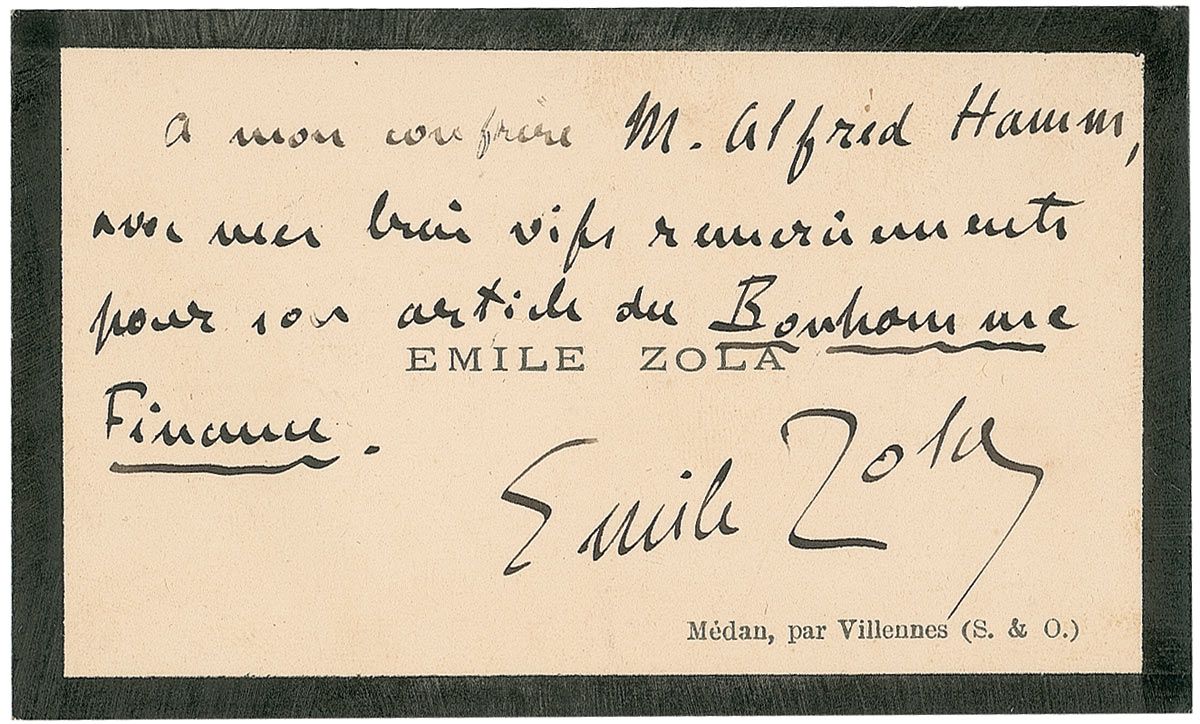 a mon confrère M. Alfred Hamm,
avec mes bien vifs remerciements
pour son article du Bonhomme
EMILE ZOLA
Finance.
Emile Zola
Médan, par Villennes (S. & O.)